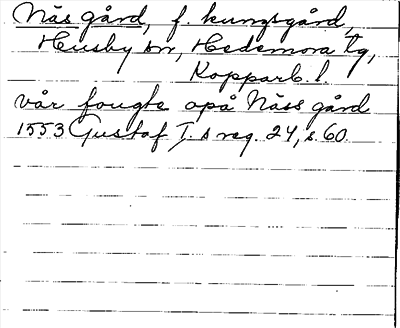 Näs gård, f. kungsgård,
Husby sn, Hedemora tg,
Kopparb. l.
vår fougte opå Näss gård
1553 Gustaf I:s reg. 24, s. 60.